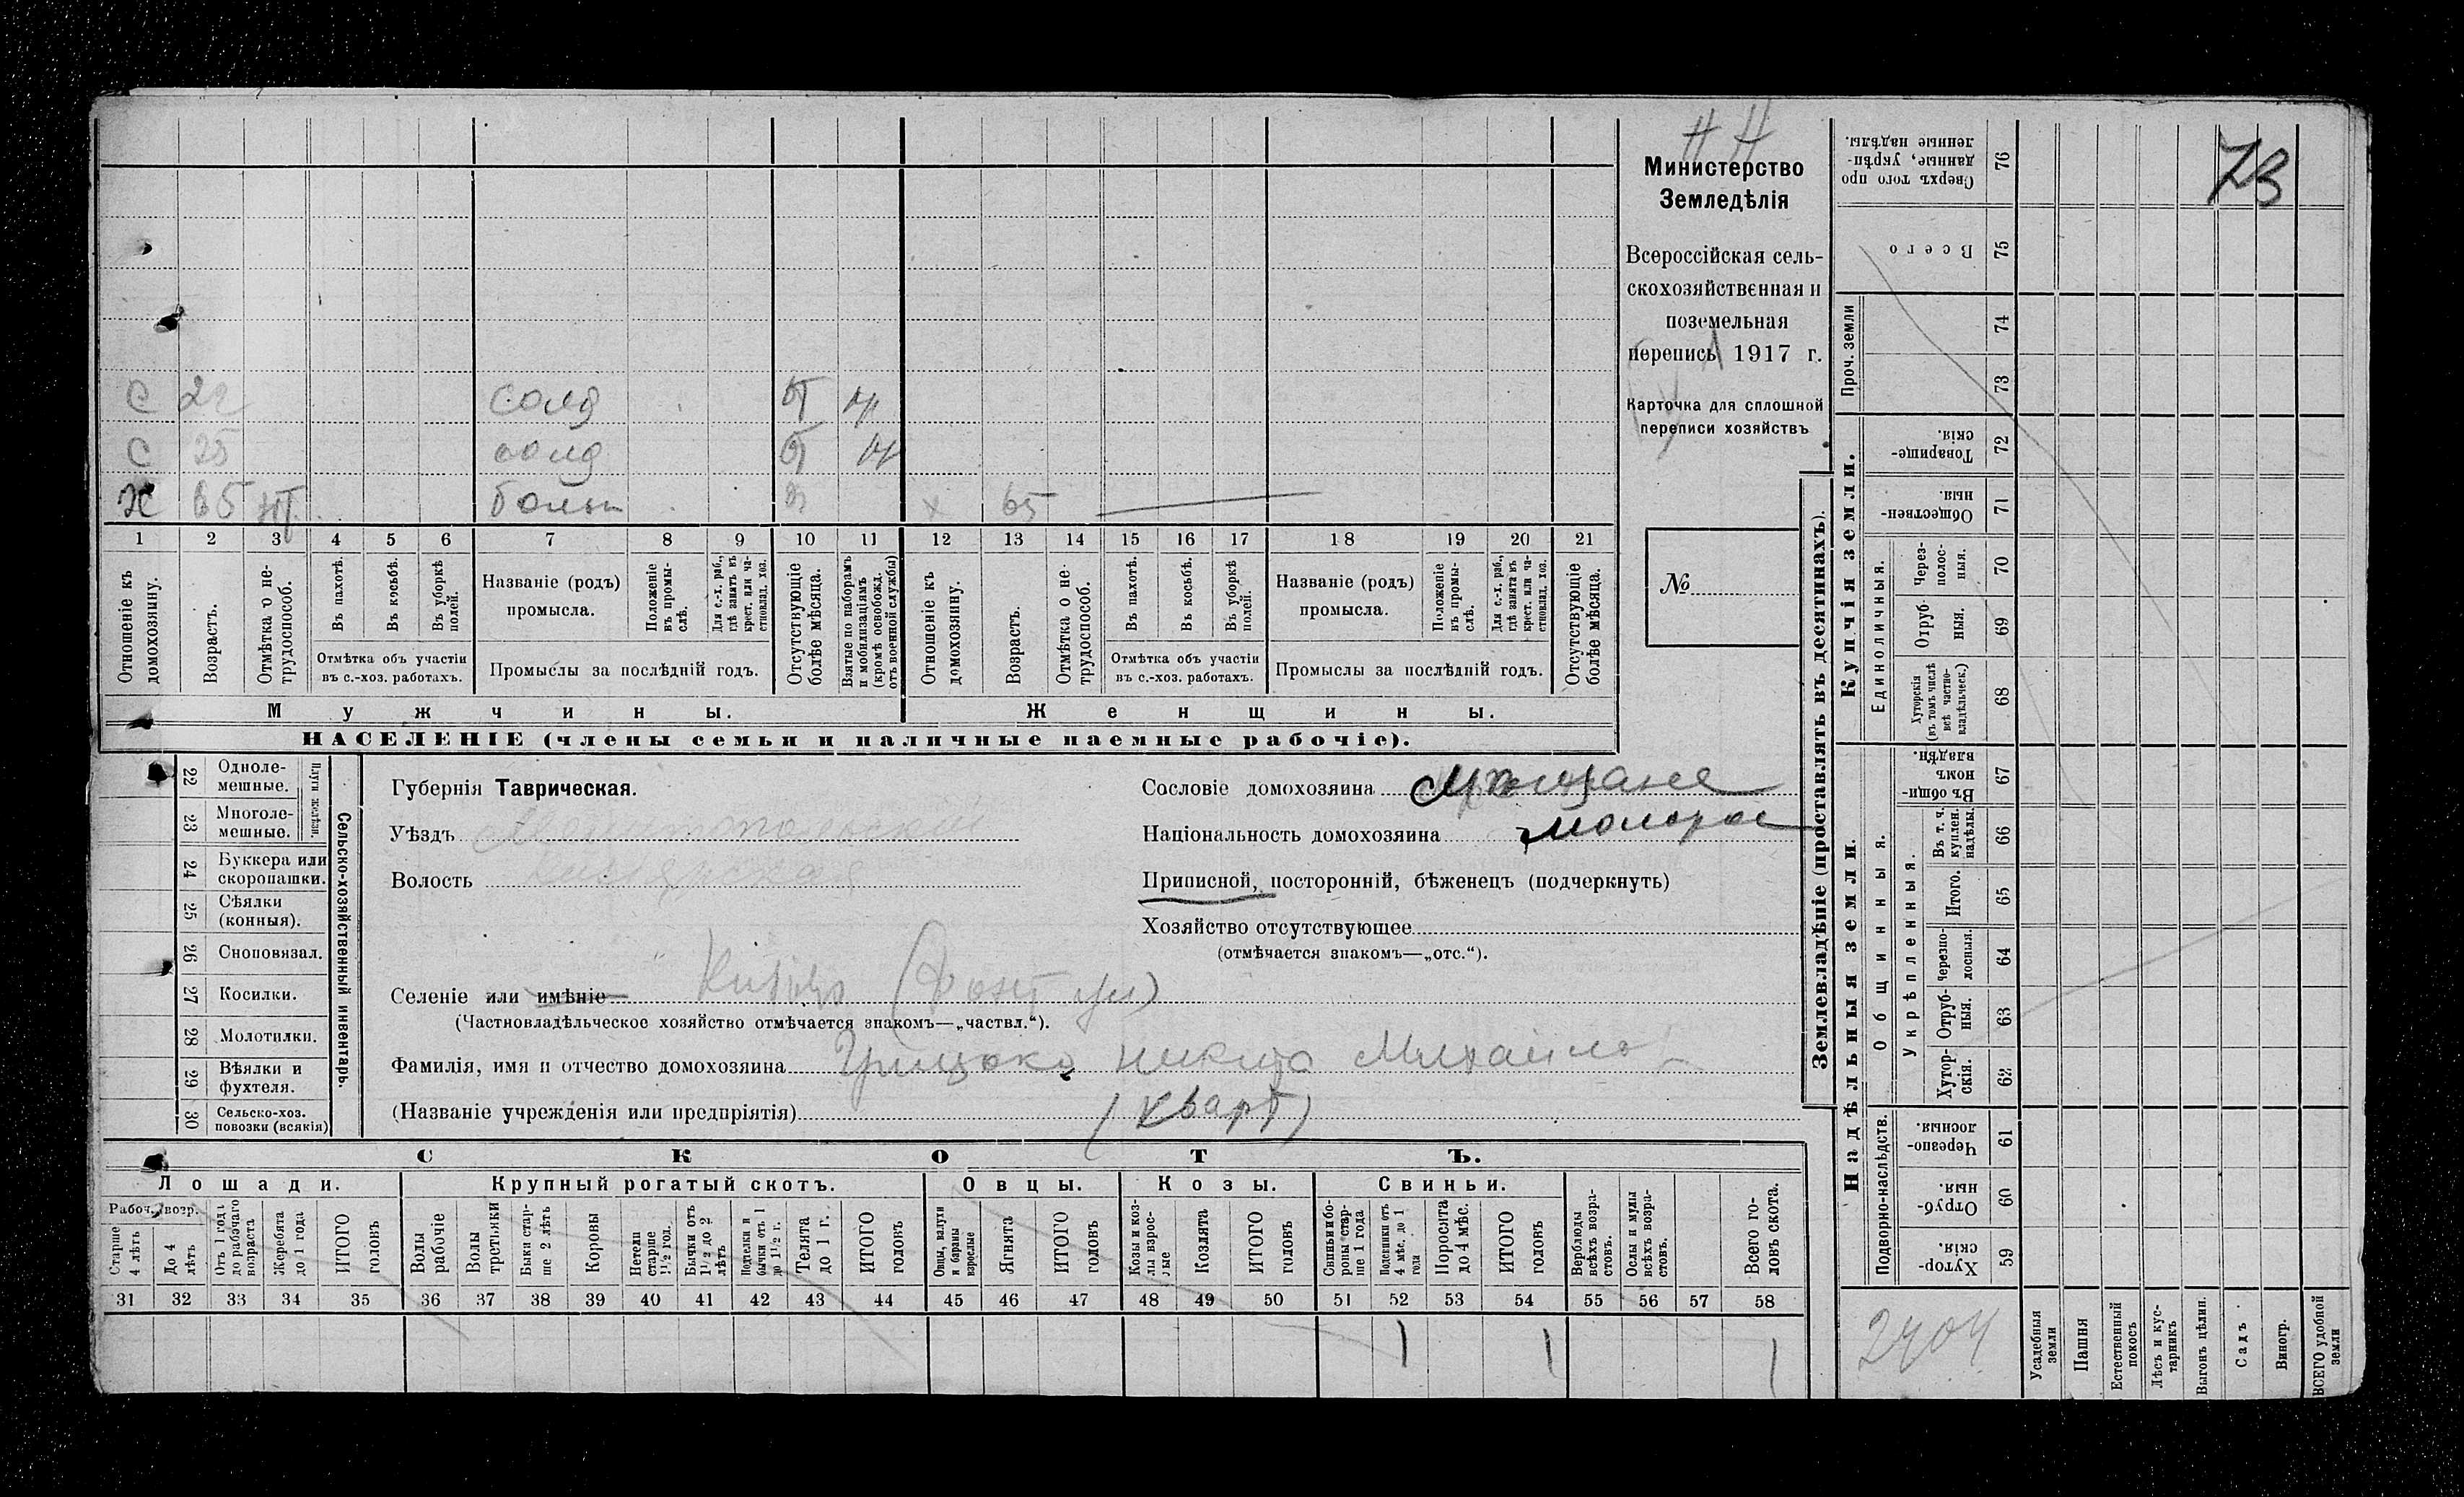 Н Н
73
Министерство
Земледѣлія
Всероссійская сель-
скохозяйственная и
поземельная
перепись 1917 г.
Карточка для сплошной
переписи хозяйствъ
№
С 22 солд
С 25 солд
Х 65 нт. х 65
1 2 3 4 5 6 7 8 9 10 11 12 13 14 15 16 17 18 19 20 21
Отношеніе къ домохозяину.
Возрастъ.
Отмѣтка о не-трудоспособ.
Въ пахотѣ.
Въ косьбѣ.
Въ уборкѣ полей.
Отмѣтка объ участіи
въ с.-хоз. работахъ.
Названіе (родъ)
промысла.
Положеніе въ промы-слѣ.
Для с.-х. раб., гдѣ занятъ въ крест. или ча-стновлад. хоз.
Промыслы за послѣдній годъ.
Отсутствующіе болѣе мѣсяца.
Взятые по наборамъ и мобилизаціямъ (кромѣ освобожд. отъ военной службы)
Отношеніе къ домохозяину.
Возрастъ.
Отмѣтка о не-трудоспособ.
Въ пахотѣ.
Въ косьбѣ.
Въ уборкѣ полей.
Отмѣтка объ участіи
въ с.-хоз. работахъ.
Названіе (родъ)
промысла.
Положеніе въ промы-слѣ.
Для с.-х. раб., гдѣ занята въ крест. или ча-стновлад. хоз.
Промыслы за послѣдній годъ.
Отсутствующіе болѣе мѣсяца.
Мужчины. Женщины.
НАСЕЛЕНІЕ (члены семьи и наличные наемные рабочіе).
22 Одноле-мешные.
23 Многоле-мешные.
Плуги желѣзн.
24 Буккера или скоропашки.
25 Сѣялки (конныя).
26 Сноповязал.
27 Косилки.
28 Молотилки.
29 Вѣялки и фухтеля.
30 Сельско-хоз. повозки (всякія)
Сельско-хозяйственный инвентарь.
Губернія Таврическая.
Уѣздъ Мелитопольскій
Волость
Сословіе домохозяина Мѣщане
Національность домохозяина малорос
Приписной, посторонній, бѣженецъ (подчеркнуть)
Хозяйство отсутствующее
(отмѣчается знакомъ—„отс.“).
Селеніе или имѣніе
(Частновладѣльческое хозяйство отмѣчается знакомъ—„частвл.“).
Фамилія, имя и отчество домохозяина Грищоко Никита Михайло
(Названіе учрежденія или предпріятія) (кварт)
СКОТЪ.
Лошади. Крупный рогатый скотъ. Овцы. Козы. Свиньи.
Рабоч. возр.
Старше 4 лѣтъ
До 4 лѣтъ
Отъ 1 года до рабочаго возраста
Жеребята до 1 года
ИТОГО головъ
Волы рабочіе
Волы третьяки
Быки стар-ше 2 лѣтъ
Коровы
Нетели старше 1½ год.
Бычки отъ 1½ до 2 лѣтъ
Подтелки и бычки отъ 1 до 1½ г.
Телята до 1 г.
ИТОГО головъ
Овцы, валухи и бараны взрослые
Ягнята
ИТОГО головъ
Козы и коз-лы взрос-лые
Козлята
ИТОГО головъ
Свиньи и бо-ровы стар-ше 1 года
Подсвинки отъ 4 мѣс. до 1 года
Поросята до 4 мѣс.
ИТОГО головъ
Верблюды всѣхъ возра-стовъ.
Ослы и мулы всѣхъ возра-стовъ.
Всего го-ловъ скота.
31 32 33 34 35 36 37 38 39 40 41 42 43 44 45 46 47 48 49 50 51 52 53 54 55 56 57 58
1 1 1
Землевладѣніе (проставлять въ десятинахъ).
Купчія земли.
Надѣльныя земли.
Сверхъ того про-данные, укрѣп-ленные надѣлы. 76
Всего 75
Проч. земли
74
73
Товарище-скія. 72
Обществен-ныя. 71
Единоличныя.
Через-полос-ныя. 70
Отруб-ныя. 69
Хуторскія (въ томъ числѣ всѣ частно-владѣльческ.) 68
Общинныя.
Въ общи-номъ владѣн. 67
Укрѣпленныя.
Въ т. ч. куплен. надѣлы. 66
Итого. 65
Черезпо-лосныя. 64
Отруб-ныя. 63
Хутор-скія. 62
Подворно-наслѣдств.
Черезпо-лосныя 61
Отруб-ныя. 60
Хутор-скія. 59
2404
Усадебныя земли
Пашня
Естественный покосъ
Лѣсъ и кус-тарникъ
Выгонъ цѣлин.
Садъ
Виногр.
ВСЕГО удобной земли